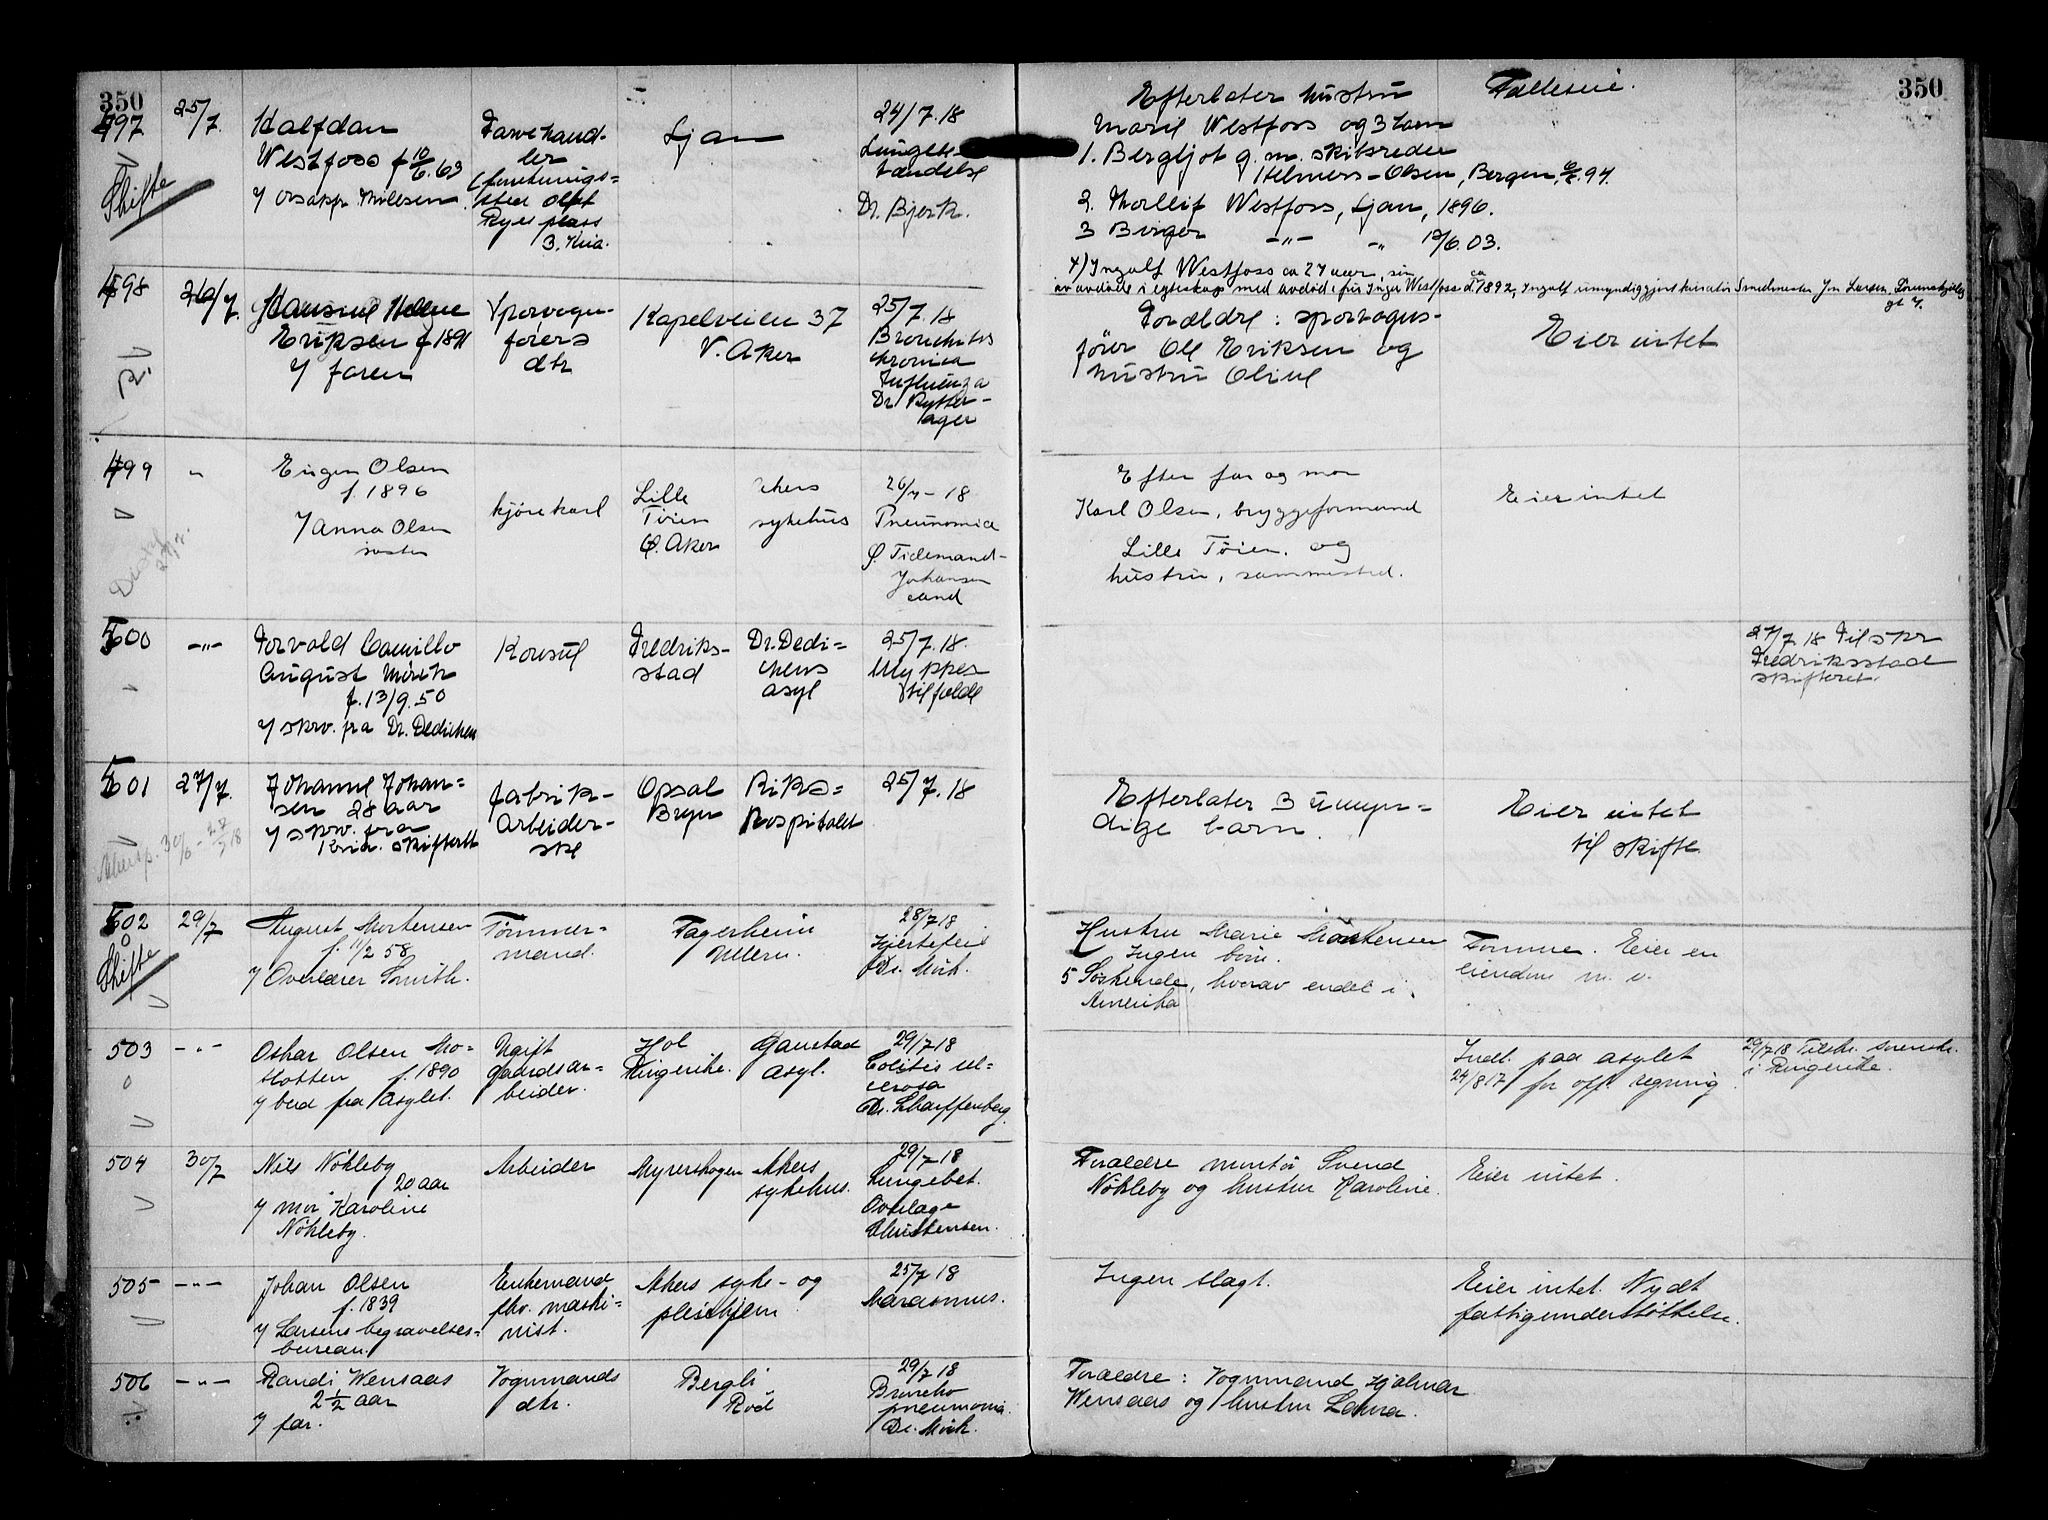 350
497
25/7.
Halfdan
Westfoss f 10/6.63
Skifte
Farvehand-
ler
Ljan
24/7.18
Lungebe-
tændelse
Dr. Bjerk.
Efterlater hustru
Marie Westfoss og 3 barn
1. Bergljot g. m. skibsreder
Olsen, Bergen,
94.
2. Thorleif Westfoss, Ljan, 1896.
3 Birger -"- -"- 03.
Fælleseie.
350
4) Ingolf Westfoss ca 27 aar, søn
av avdøde i egteskap med avdøde Inger Westfoss d. ca 1892, Ingolf umyndiggjort kurator Smedmester Larsen,
498
26/7.
Helene
Eriksen f 1891
/ faren
Sporvogns-
førers
dtr
Kapelveien 37
V. Aker
25/7.18
Bronchitis
kronica
Influenza
Dr. Rytter-
ager
Forældre: sporvogns-
fører Ole Eriksen og
hustru Oline
Eier intet
499
"
Eugen Olsen
f. 1896
/ Anna Olsen
søster
kjørekarl
Lille
Tøien
Ø. Aker
Akers
sykehus
26/7 - 18
Pneumonia
Ø. Tidemand-
Johansen
cand
Efter far og mor
Karl Olsen, bryggeformand
Lille Tøien. og
hustru, sammested.
Eier intet
500
-"-
Torvald Camillo
August
f. 13/9.50
/ skrv. fra Dr. Dedichen
Konsul
Fredriks-
stad
Dr. Dedi=
chens
asyl
25/7.18.
Ulykkes
tilfælde
27/7 18 Tilskr
Fredriksstad
skifteret.
501
27/7.
Johanne Johan=
sen 28 aar
/ skrv. fra
Kria. skifterett
Fabrik-
arbeider-
ske
Opsal
Bryn
Riks=
hospitalet
25/7.18
Efterlater 3 umyn=
dige barn.
Eier intet
til skifte
502
29/7
Skifte
August Mortensen
f. 11/2 58
/ Overlærer Smith.
Tømmer-
mand.
Fagerheim
Ullern.
28/7 18
Hjertefeil
Dr. Mörk.
Hustru Marie Mortensen
Ingen børn.
5 Søskende, hvorav endel i
Amerika
Eier en
eiendom m. v.
503
-"-
Oskar Olsen Mo-
f. 1890
/ bud fra asylet.
Ugift
gaardsar=
beider.
Hol
Ringerike.
Gaustad
Asyl.
29/7 18
Colitis ul=
cerosa
Dr. Scharffenberg.
Indl. paa asylet
24/8 17 for off. regning
29/7 18 Tilskr. sorensk.
i Ringerike.
504
30/7
Nils Nökleby
20 aar
/ mor Karoline
Nökleby.
Arbeider
Myrerskogen
Akers
sykehus.
29/7 18
Lungebet.
Overlæge
Christensen.
Forældre murer Svend
Nökleby og hustru Karoline.
Eier intet.
505
-"-
Johan Olsen
f. 1839
/ Larsens begravelses=
bureau.
Enkemand
fhv. maski=
nist.
Akers syke- og
pleiehjem
25/7 18
Marasmus.
Ingen slægt.
Eier intet. Nydt
fattigunderstøttelse.
506
-"-
Randi Wensaas
2 1/2 aar
/ far.
Vognmands
dtr.
Bergli
Röd
29/7 18
Broncho
pneumonia.
Dr. Mörk.
Forældre: Vognmand Hjalmar
Wensaas og hustru Laura.